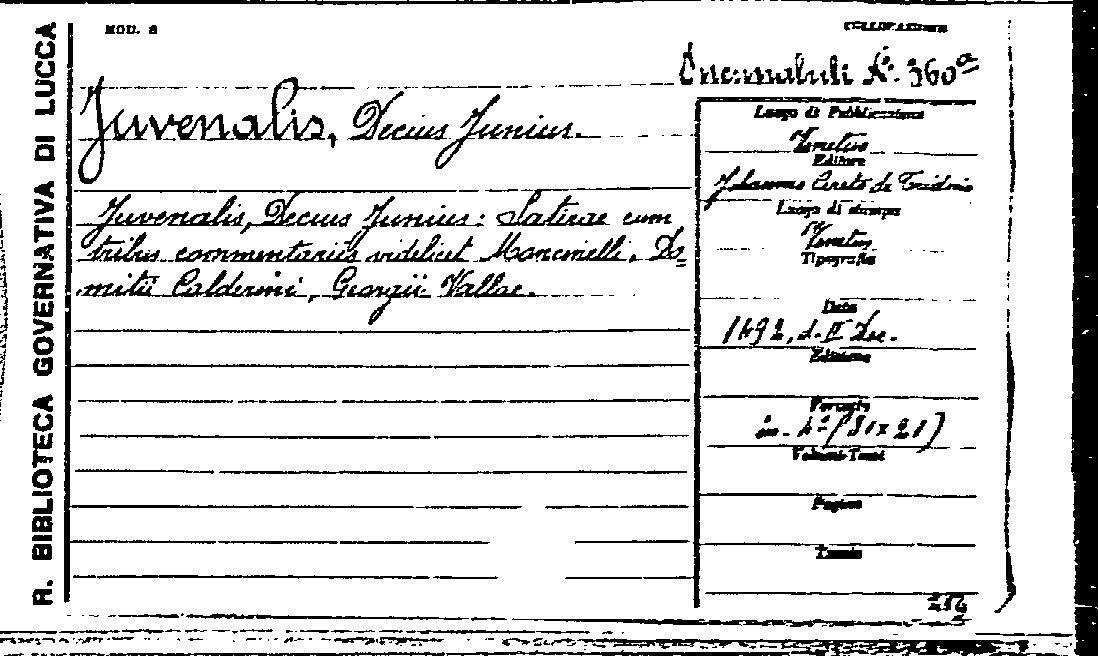 R. BIBLIOTECA GOVERNATIVA DI LUCCA
MOD. 2
COLLOCAZIONE
Incunabuli N. 360a
Juvenalis, Decius Junius.
Juvenalis, Decius Junius: Satirae cum
tribus commentariis videlicet Mancinelli, Do-
mitii Calderini, Georgii Vallae.
Luogo di Pubblicazione
Venetiis
Editore
Johannes Cereto de Tridino
Luogo di stampa
Venetiis
Tipografia
Data
1492, d. II Dec.
Edizione
Formato
in-4° (31x21)
Volumi-Tomi
Pagine
Tavole